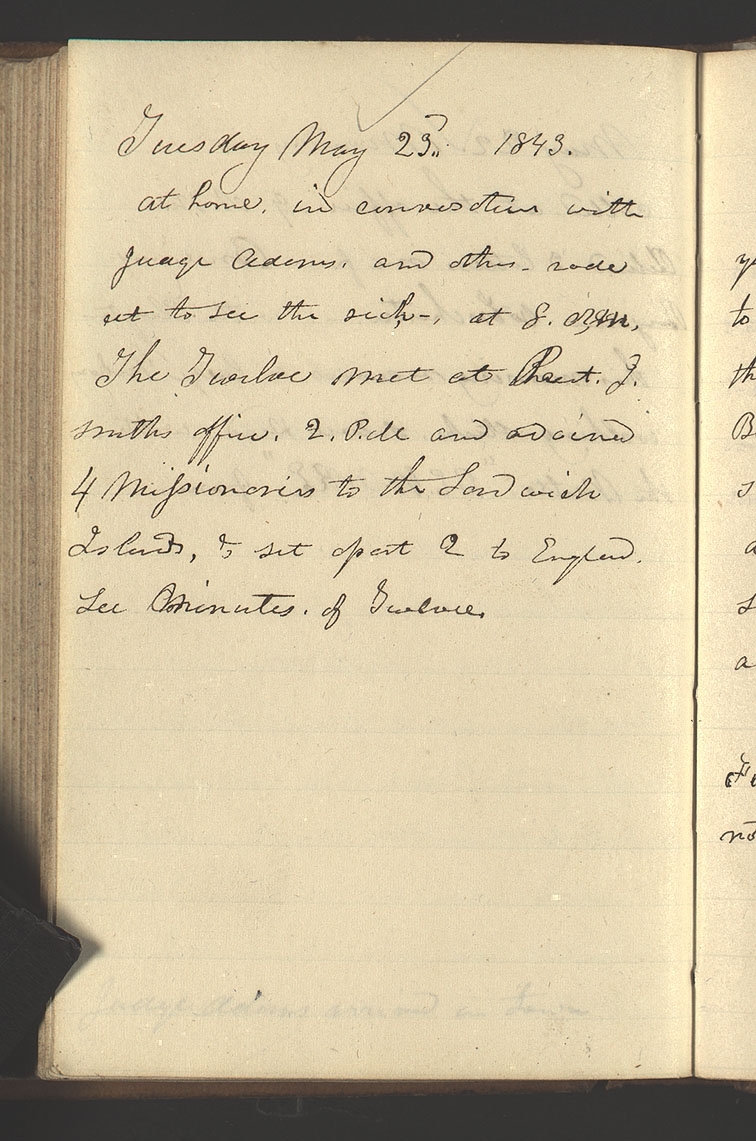 Tuesday May 23d. 1843.
at home. in conversation with
Judge Adams. and others. rode
out to see the sick-, at 8.
The Twelve met at Prest. J.
smiths office. 2. P.M and ordained
4 Missionaries to the Sandwich
Islands, & set apart 2 to England.
See minutes. of Twelve.
Judge Adams arrived in
yo
to
th
B
s
a
s
a
Fi
no